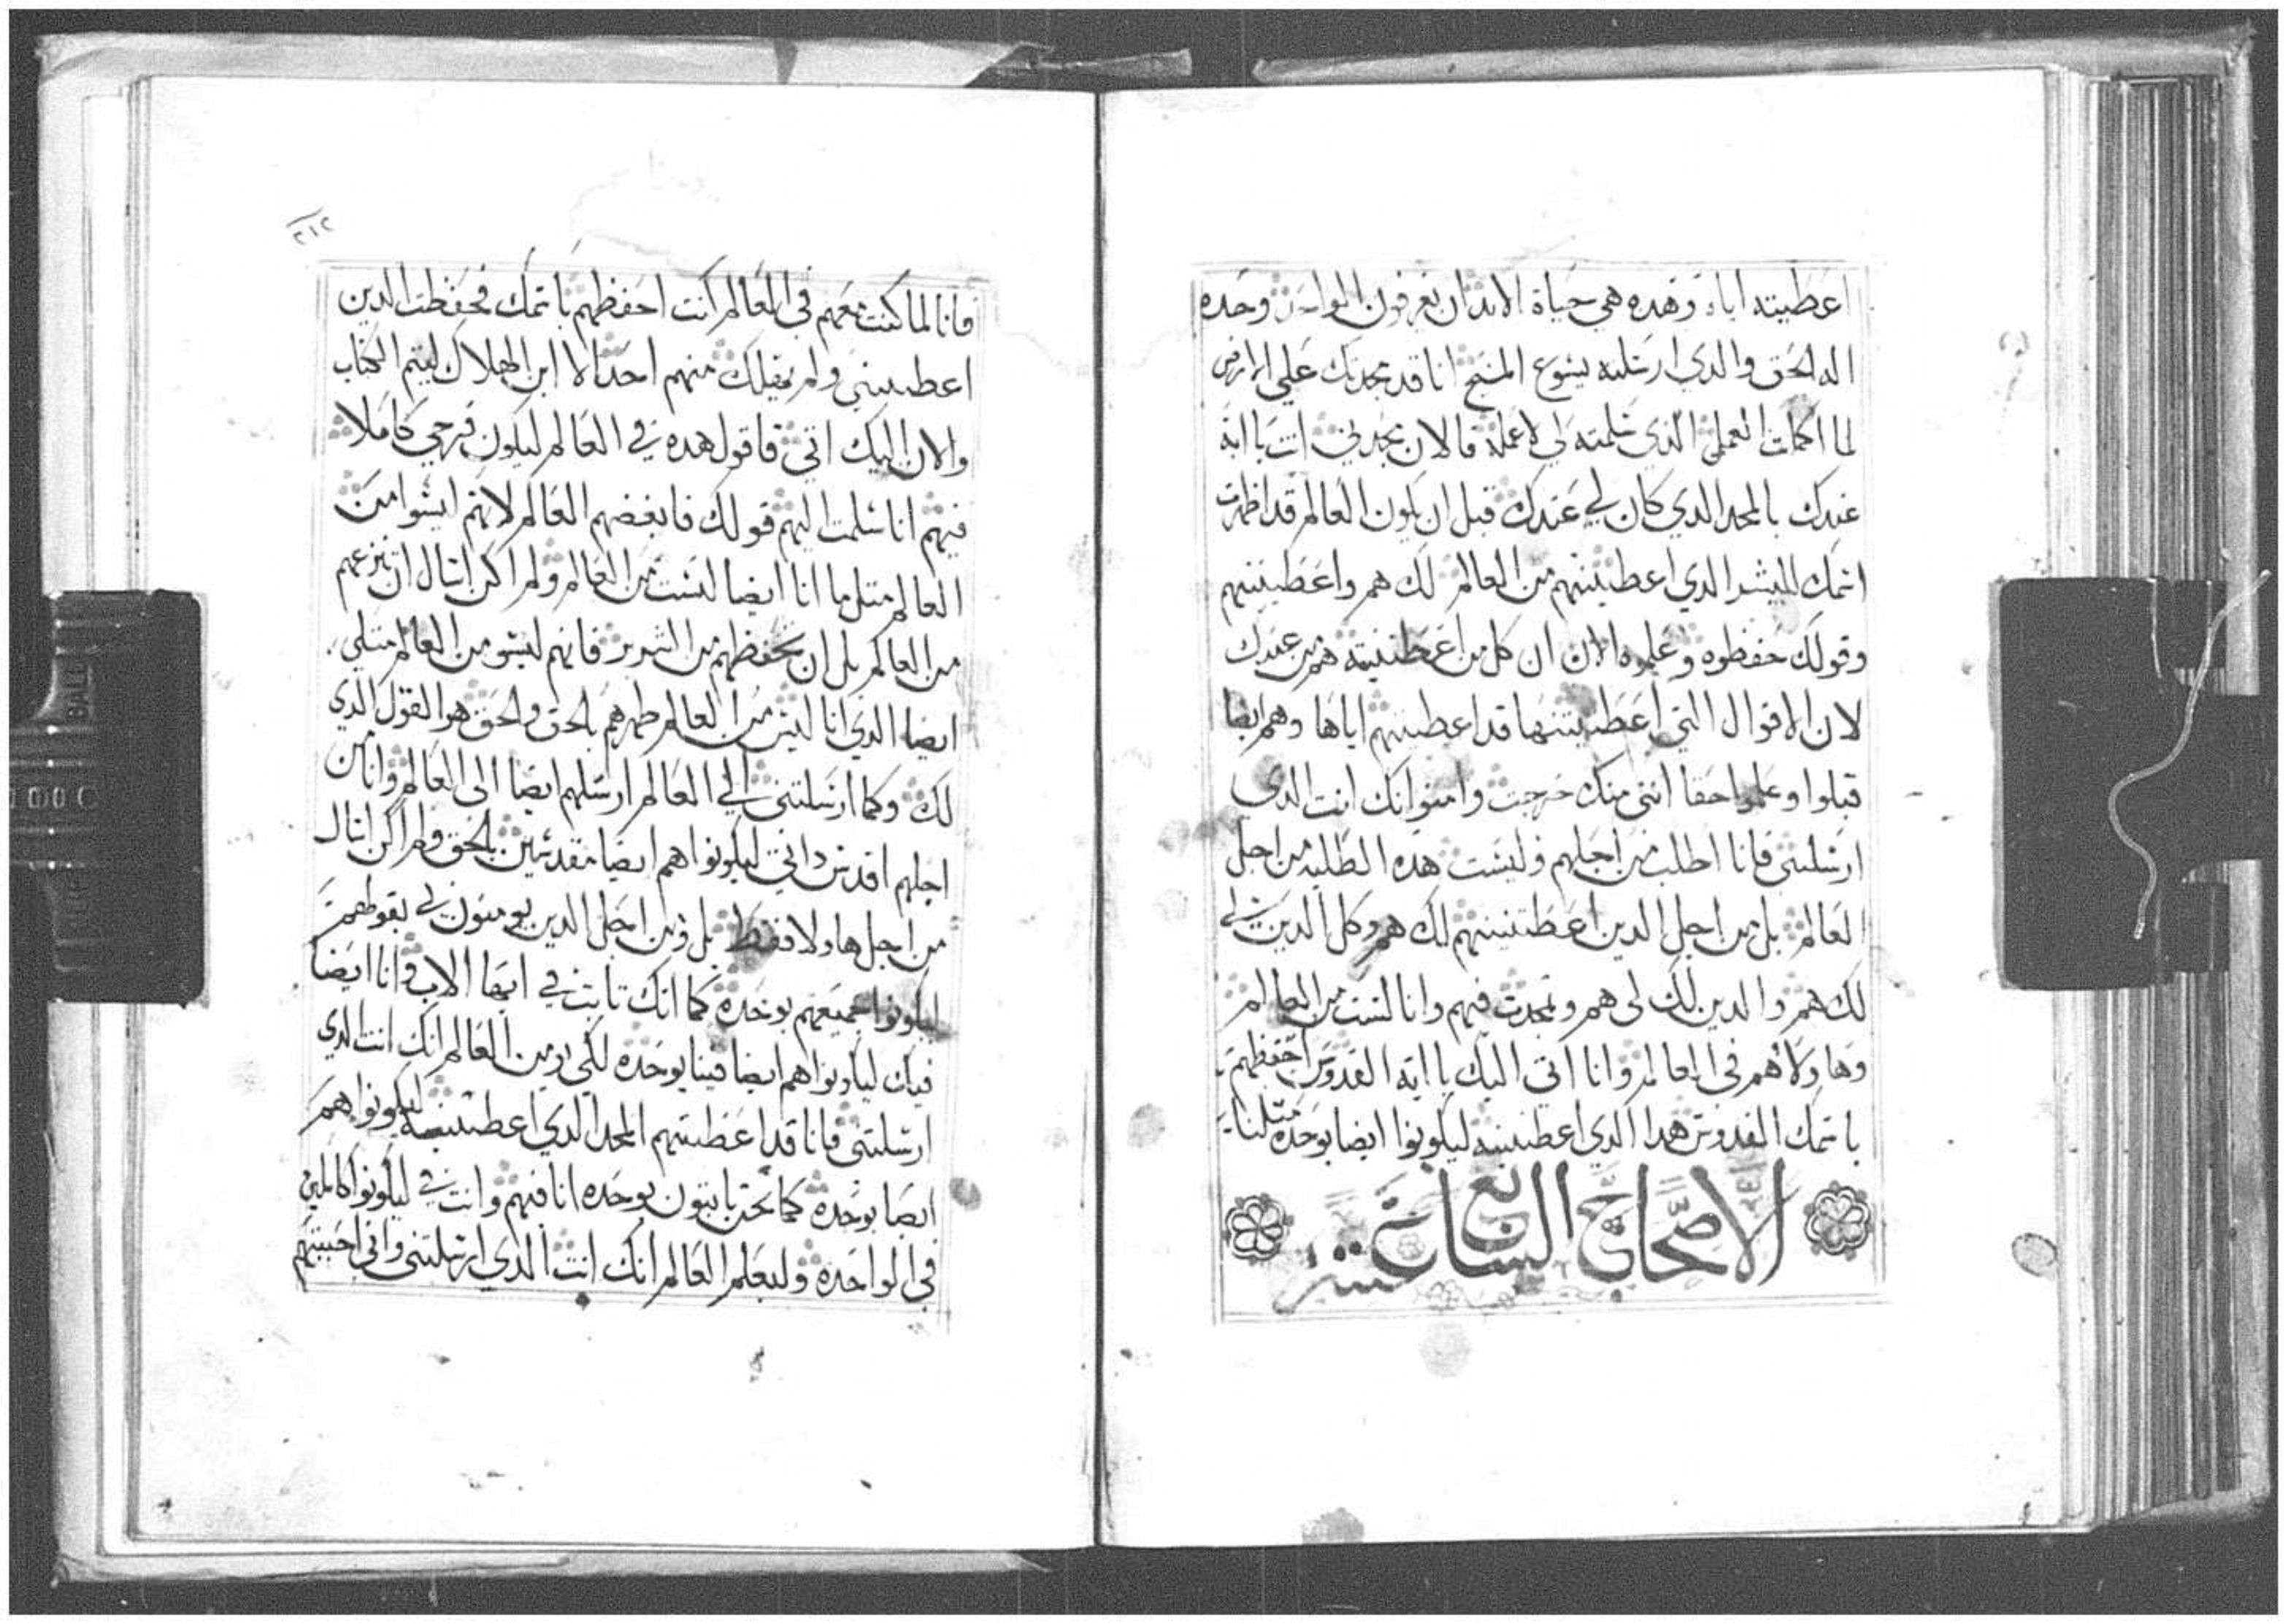 اعطيته اياه وهده هي حياة الابد ان يعرفون الواحد وحده
اله الحق والدي ارسلته يسوع المسيح انا قد مجدتك علي الارض
لما اكملت العمل الدي سلمته لي لاعمله فالان مجدني انت يا ابه
عندك بالمجد الدي كان لي عندك قبل ان يكون العالم قد اظهرت
اسمك للبشر الدي اعطيتنيهم من العالم لك هم واعطيتنيهم
وقولك حفظوه وعلموه الان ان كل من اعطيتنيه هم من عندك
لان الاقوال التي اعطيتنيها قد اعطيتهم اياها وهم ايضا
قبلوا وعلموا حقا انني منك خرجت وامنوا نك انت الدي
ارسلتني فانا اطلب من اجلهم وليست هده الطلبه من اجل
العالم بل من اجل الدين اعطيتنيهم لك هم وكل الدين لي
لك هم والدين لك لي هم وتمجدت فيهم وانا لست من العالم
وهاولاهم في العالم وانا اتي اليك يا ابه القدوس احفظهم
باسمك القدوس هدا الدي اعطيتنيه ليكونوا ايضا بوحده مثلنا
الاصحاح السابع عشر
٢١٢
فانا لما كنت معهم في العالم كنت احفظهم باسمك فحفظت الدين
اعطيتني ولم يهلك منهم احدا الا ابن الهلاك ليتم الكتاب
والان اليك اتي فاقول هده في العالم ليكون فرحي كاملا
فيهم انا سلمت اليهم قولك فابغضهم العالم لانهم ليسوا من
العالم متل ما انا ايضا لست من العالم ولم اكن اسال ان تنزعهم
من العالم بل ان تحفظهم من الشرير فانهم ليسو من العالم متلي
ايضا الدي انا ليس من العالم طهرهم بالحق والحق هو القول الدي
لك وكما ارسلتني الي العالم ارسلهم ايضا الي العالم وانا من
اجلهم اقدس داتي ليكونوا هم ايضا مقدسين بالحق ولم اكن اسال
من اجل هاولا فقط بل ومن اجل الدين يومنون لي بقولهم
ليكونوا جميعهم بوحده كما انك تابت في ايها الاب وانا ايضا
فيك ليكونوا هم ايضا فينا بوحده لكي يومن العالم انك انت الدي
ارسلتني فانا قد اعطيتهم المجد الدي اعطيتنيه ليكونوا هم
ايضا بوحده كما نحن تابتون بوحده انا فيهم وانت في ليكونوا كاملين
في الواحده وليعلم العالم انك انت الدي ارسلتني واني احببتهم